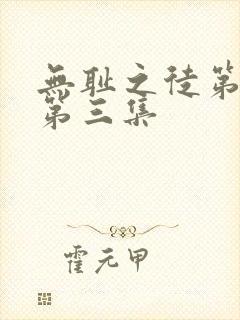 無耻之徒第
第三集
霍元甲